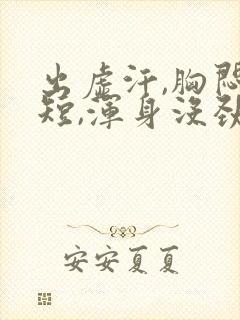 出虚汗,胸闷
短,浑身没劲
安安夏夏